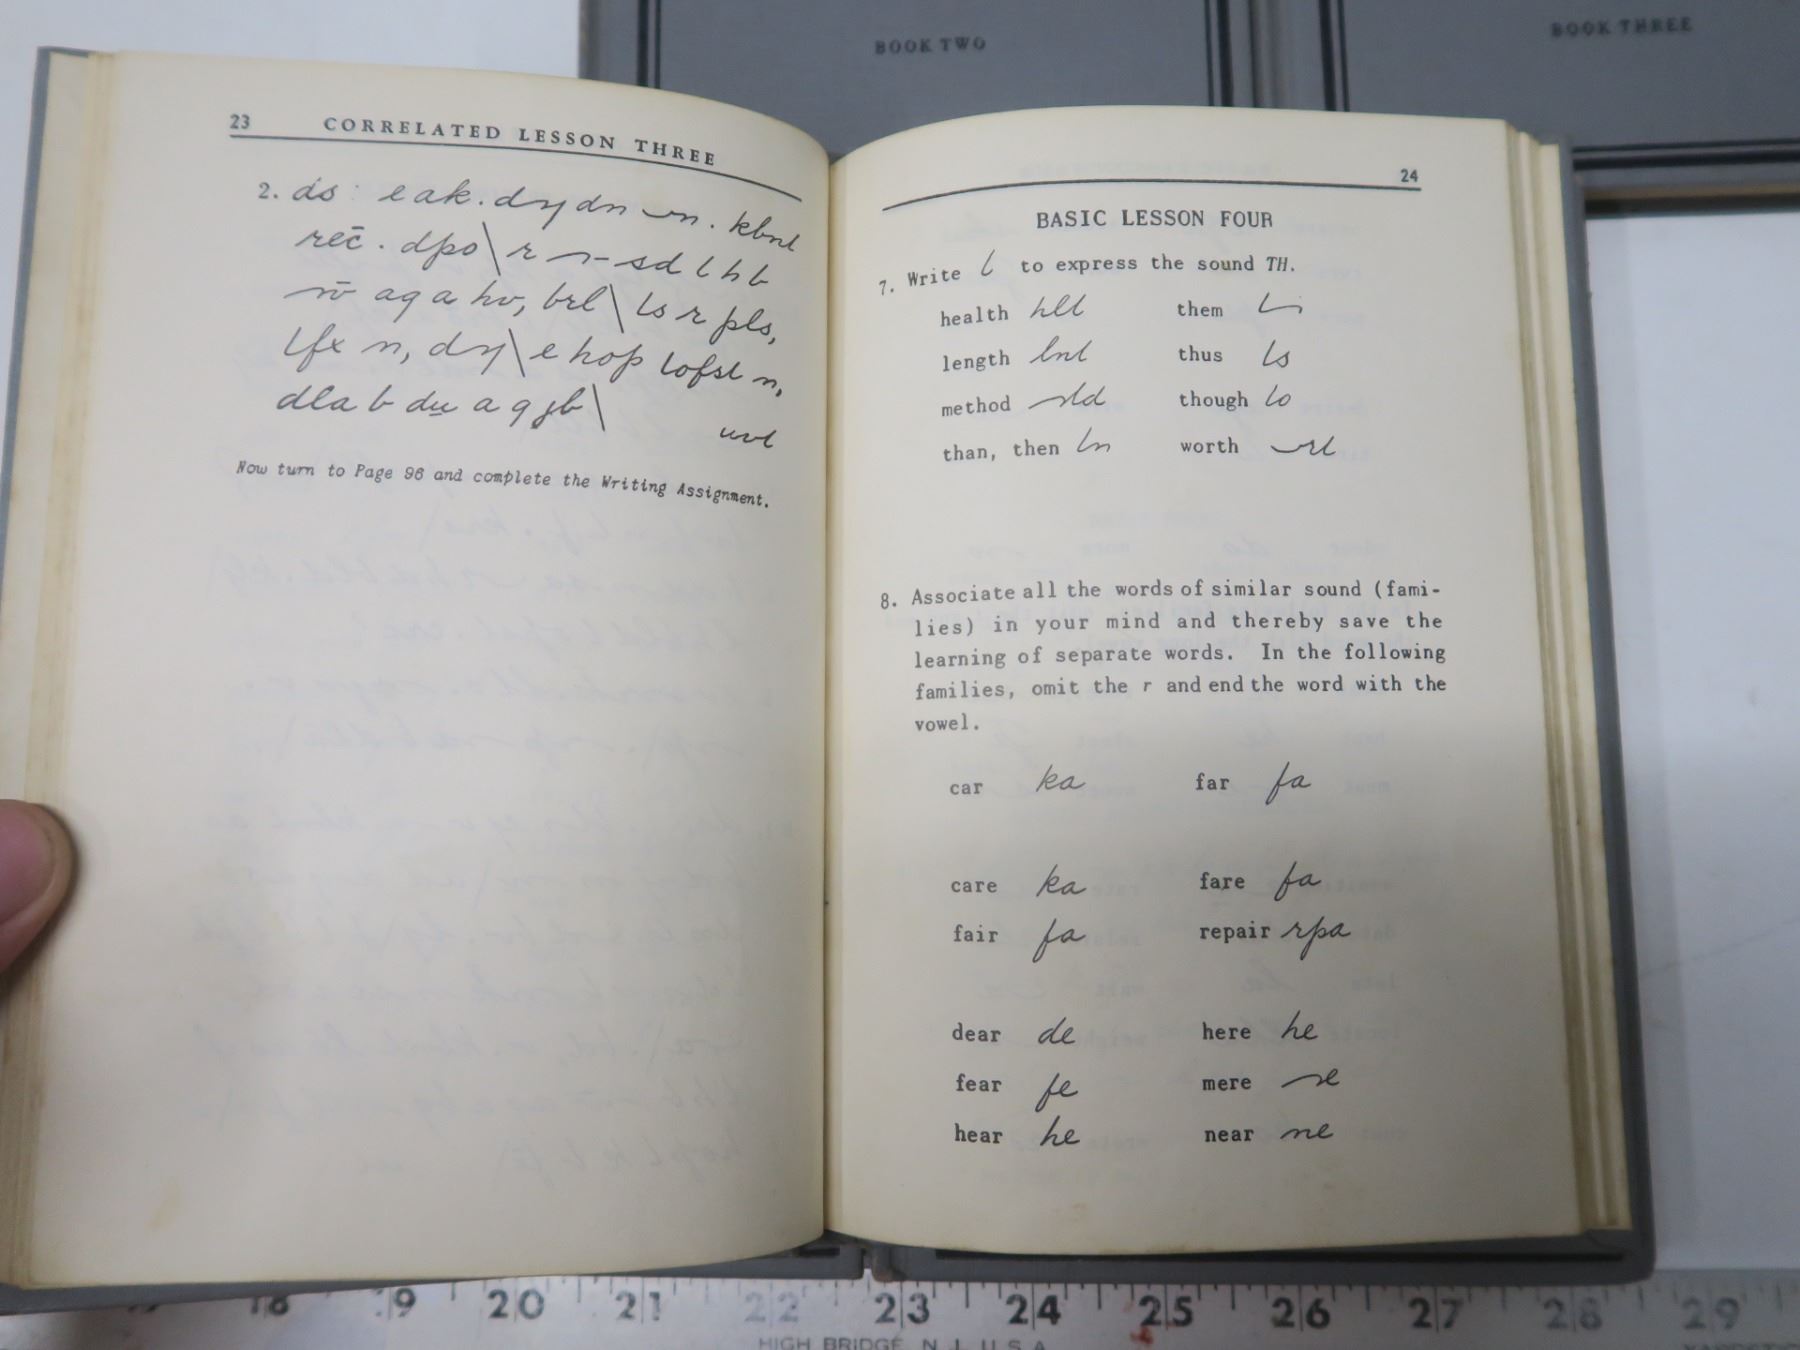 BOOK TWO
BOOK THREE
23 CORRELATED LESSON THREE
2. ds: e ak. dy dn
kbnl
rec . dpo \ r
sd l h b
ag a hv, brl \ ls r pls,
lfx n, dy \ e hop lofsl n,
dla b du a q jb \
uvl
Now turn to Page 96 and complete the Writing Assignment.
24
BASIC LESSON FOUR
7. Write l to express the sound TH.
health hll them
length lnl thus ls
method though lo
than, then ln worth
8. Associate all the words of similar sound (fami-
lies) in your mind and thereby save the
learning of separate words. In the following
families, omit the r and end the word with the
vowel.
car ka far fa
care ka fare fa
fair fa repair rpa
dear de here he
fear fe mere
hear he near ne
18 19 20 21 22 23 24 25 26 27 28 29
HIGH BRIDGE, N.J. U.S.A.